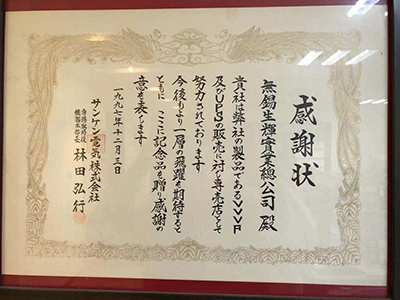 感謝状
無錫生輝實業總公司 殿
貴社は弊社の製品であるVVVF
及びUPSの販売に対し専売店として
努力されております
今後もより一層の飛躍を期待すると
ともに ここに記念品を贈り感謝の
意を表します
一九九七年十二月三日
サンケン電気株式会社
専務取締役
機器本部長
林田弘行